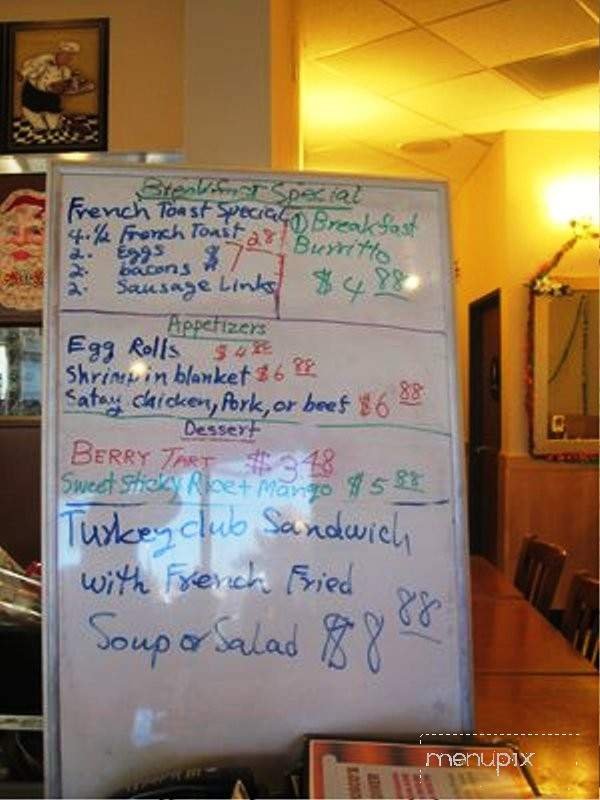 Breakfast Special
French Toast Special
4. ½ French Toast
2. Eggs $7 28
2. bacons
2. Sausage Links
① Breakfast
Burritto
$4 88
Appetizers
Egg Rolls $4 88
Shrimp in blanket $6 88
Satay chicken, Pork, or beef $6 88
Dessert
BERRY TART $3 48
Sweet Sticky Rice + Mango $5 88
Turkey club Sandwich
with French Fried
Soup or Salad $8 88
menupix